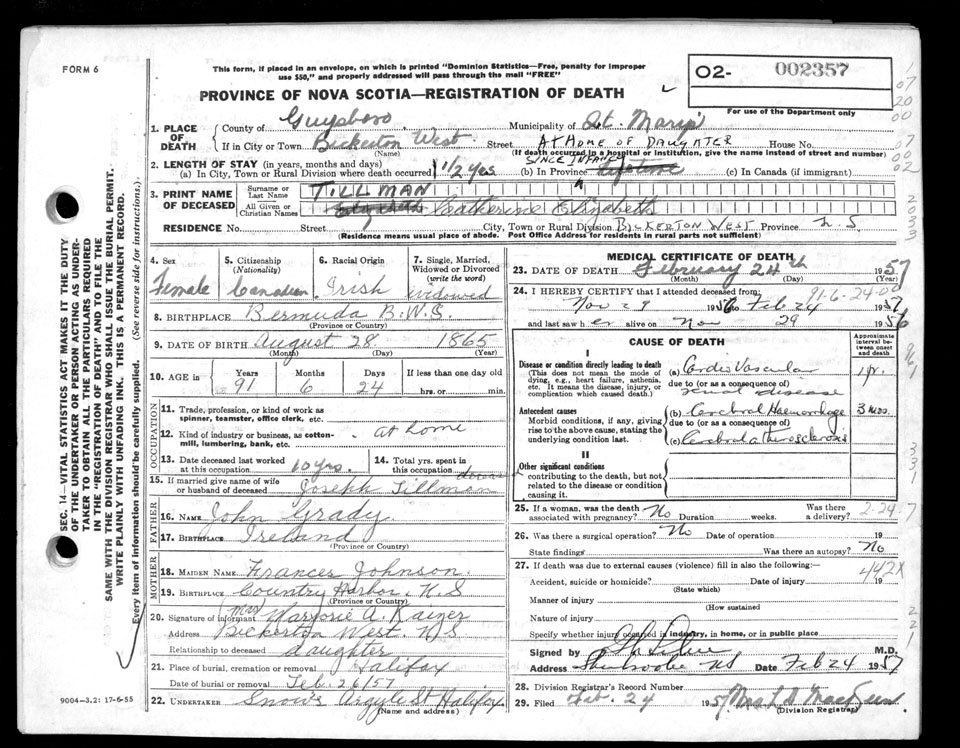 FORM 6
This form, if placed in an envelope, on which is printed "Dominion Statistics—Free, penalty for improper
use $50," and properly addressed will pass through the mail "FREE"
PROVINCE OF NOVA SCOTIA—REGISTRATION OF DEATH
02- 002357
For use of the Department only
SEC. 14—VITAL STATISTICS ACT MAKES IT THE DUTY
OF THE UNDERTAKER OR PERSON ACTING AS UNDER-
TAKER TO OBTAIN ALL THE PARTICULARS REQUIRED
IN THE "REGISTRATION OF DEATH" AND TO FILE THE
SAME WITH THE DIVISION REGISTRAR WHO SHALL ISSUE THE BURIAL PERMIT.
WRITE PLAINLY WITH UNFADING INK. THIS IS A PERMANENT RECORD.
Every item of information should be carefully supplied. (See reverse side for instructions.)
1. PLACE OF DEATH
County of Guysboro Municipality of St. Mary's
If in City or Town Bickerton West Street AT HOME OF DAUGHTER House No.
(Name) (If death occurred in a hospital or institution, give the name instead of street and number)
2. LENGTH OF STAY (in years, months and days)
(a) In City, Town or Rural Division where death occurred 1 1/2 yrs (b) In Province SINCE INFANCY lifetime (c) In Canada (if immigrant)
3. PRINT NAME OF DECEASED
Surname or Last Name TILLMAN
All Given or Christian Names Catherine Elizabeth
RESIDENCE No. Street City, Town or Rural Division BICKERTON WEST Province N.S
(Residence means usual place of abode. Post Office Address for residents in rural parts not sufficient)
4. Sex Female
5. Citizenship (Nationality) Canadian
6. Racial Origin Irish
7. Single, Married, Widowed or Divorced (write the word) Widowed
8. BIRTHPLACE Bermuda B.W.I.
(Province or Country)
9. DATE OF BIRTH August 28 1865
(Month) (Day) (Year)
10. AGE in Years 91 Months 6 Days 24 If less than one day old hrs. or min.
OCCUPATION
11. Trade, profession, or kind of work as spinner, teamster, office clerk, etc.
12. Kind of industry or business, as cotton-mill, lumbering, bank, etc. at home
13. Date deceased last worked at this occupation 10 yrs.
14. Total yrs. spent in this occupation
15. If married give name of wife or husband of deceased Joseph Tillman
FATHER
16. Name John Grady
17. Birthplace Ireland
(Province or Country)
MOTHER
18. Maiden Name Frances Johnson
19. Birthplace Country Harbor. N.S
(Province or Country)
20. Signature of informant (Mrs) Marjorie A. Kaizer
Address Bickerton West. N.S
Relationship to deceased daughter
21. Place of burial, cremation or removal Halifax
Date of burial or removal Feb. 26/57
22. Undertaker Snow's Argyle St Halifax
(Name and address)
9004—3.2: 17-6-55
MEDICAL CERTIFICATE OF DEATH
23. DATE OF DEATH February 24th 1957
(Month) (Day) (Year)
91-6-24-00
24. I HEREBY CERTIFY that I attended deceased from:
Nov 29 1956 to Feb 24 1957
and last saw her alive on Nov 29 1956
CAUSE OF DEATH
Approximate interval between onset and death
I
Disease or condition directly leading to death
(This does not mean the mode of dying, e.g., heart failure, asthenia, etc. It means the disease, injury, or complication which caused death.)
(a) Cardio Vascular 1 yr.
due to (or as a consequence of)
renal disease
Antecedent causes
Morbid conditions, if any, giving rise to the above cause, stating the underlying condition last.
(b) Cerebral Haemorrhage 3 mos.
due to (or as a consequence of)
(c) Cerebral atherosclerosis
II
Other significant conditions
contributing to the death, but not related to the disease or condition causing it.
25. If a woman, was the death associated with pregnancy? No Duration weeks. Was there a delivery?
2-24-7
26. Was there a surgical operation? No Date of operation 19
State findings Was there an autopsy? No
27. If death was due to external causes (violence) fill in also the following: 442X
Accident, suicide or homicide? Date of injury 19
(State which)
Manner of injury
(How sustained)
Nature of injury
Specify whether injury occurred in industry, in home, or in public place
Signed by M.D.
Address Sherbrooke NS Date Feb 24 1957
28. Division Registrar's Record Number
29. Filed Feb. 24 1957
(Division Registrar)